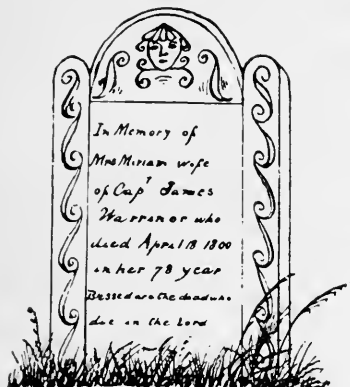 In Memory of
Mrs Miriam wife
of Capt James
Warrenor who
died April 18 1800
in her 78 year
Blessed are the dead who
die in the Lord